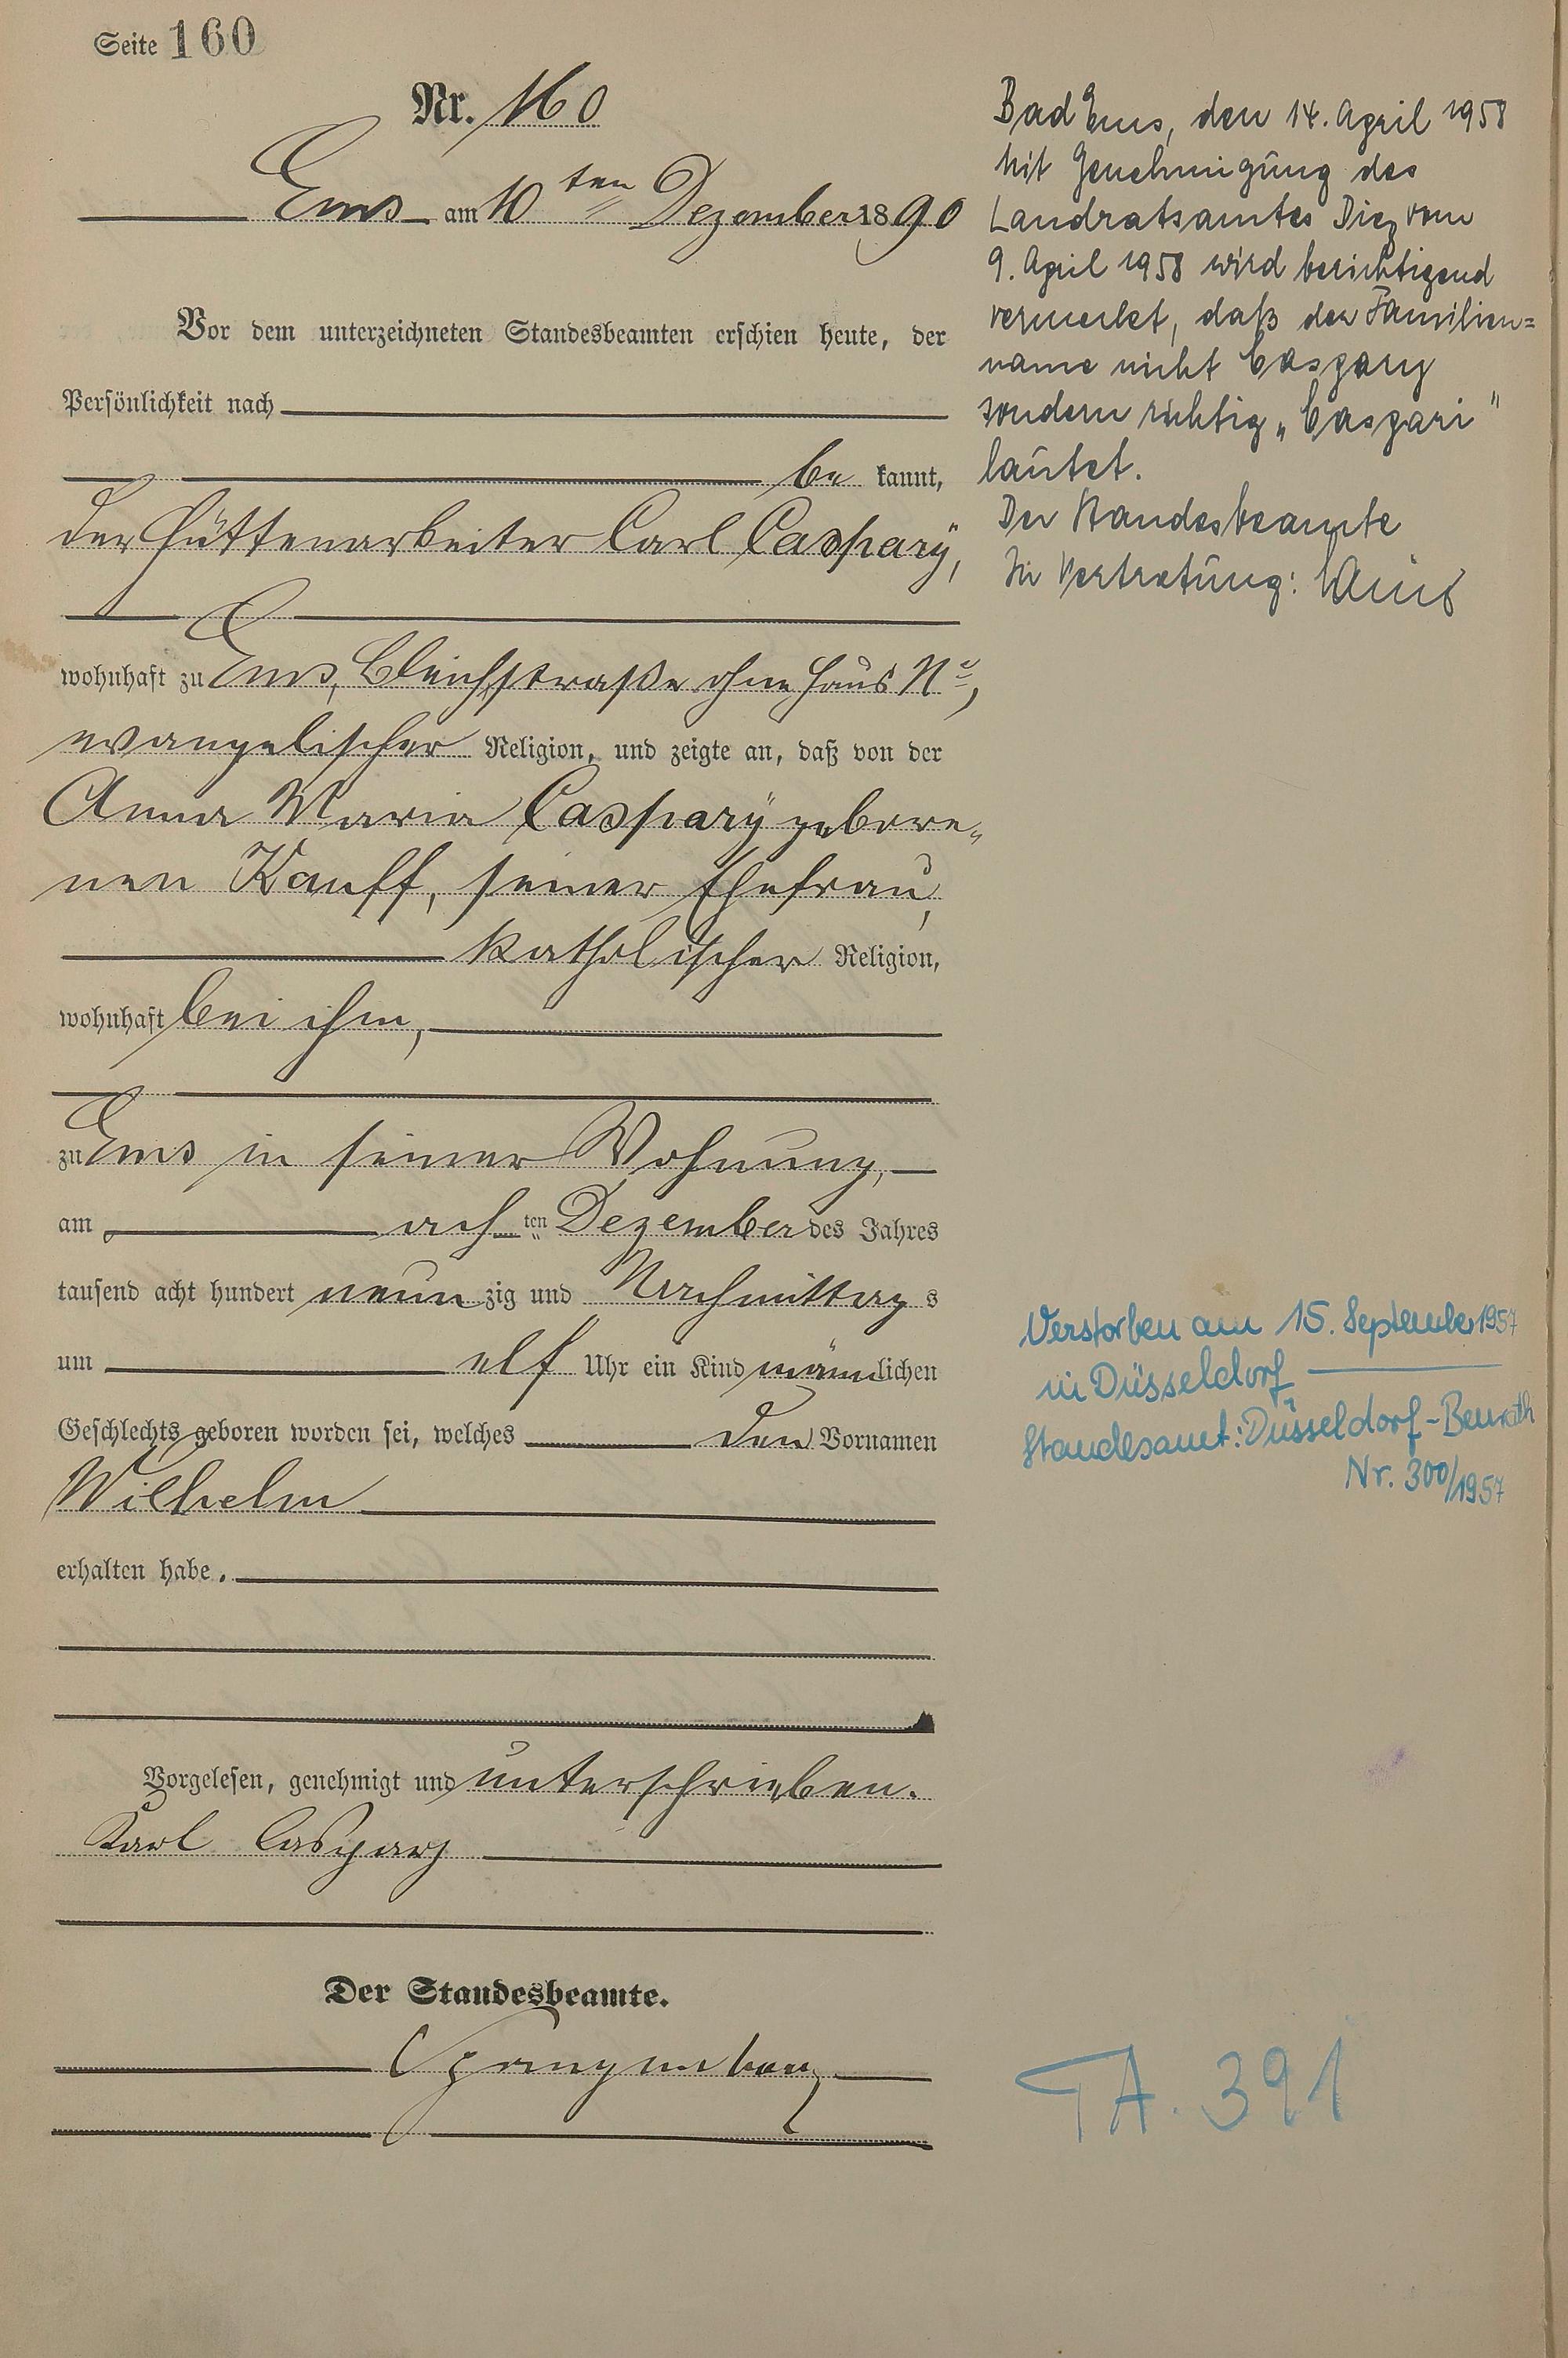 Seite 160
Nr. 160
Ems am 10ten Dezember 1890
Vor dem unterzeichneten Standesbeamten erschien heute, der
Persönlichkeit nach
be kannt,
der Hüttenarbeiter Carl Caspary,
wohnhaft zu Ems, Bleichstraße ohne Haus No,
evangelischer Religion, und zeigte an, daß von der
Anna Maria Caspary gebore-
nen Kauff, seiner Ehefrau,
katholischer Religion,
wohnhaft bei ihm,
zu Ems in seiner Wohnung,
am achten Dezember des Jahres
tausend acht hundert neunzig und Nachmittags
um elf Uhr ein Kind männlichen
Geschlechts geboren worden sei, welches den Vornamen
Wilhelm
erhalten habe.
Vorgelesen, genehmigt und unterschrieben.
Karl Caspary
Der Standesbeamte.
Bad Ems, den 14. April 1958
Mit Genehmigung des
Landratsamtes Diez vom
9. April 1958 wird berichtigend
vermerkt, daß der Familien=
name nicht Caspary
sondern richtig „Caspari"
lautet.
Der Standesbeamte
In Vertretung:
Verstorben am 15. September 1957
in Düsseldorf
Standesamt: Düsseldorf-Benrath
Nr. 300/1957
A. 391